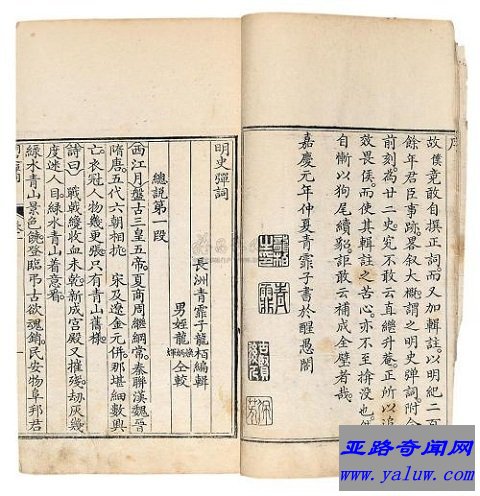 序
故僕竟敢自撰正詞。而又加輯註。以明紀二百
餘年君臣事跡。畧叙大概。謂之明史彈詞。附合
前刻。為廿二史。究不敢云直継升菴。正所以追
效畏僕。而使其輯註之苦心。亦不至揜没也。然
自慚以狗尾續貂。詎敢云補成全璧者哉。
嘉慶元年仲夏青霏子書於醒愚閣
明史彈詞
長洲青霏子龍栢編輯
男姪龍 仝較
總説第一段
西江月 盤古三皇五帝。夏商周継綱常。秦聯漢魏晉
隋唐。五代六朝相抗。 宋及遼金元併。那堪細數興
亡。衣冠人物幾更張。只有青山舊樣。
詩曰 戰戰纔收血未乾。新成宮殿又摧殘。劫灰幾
度迷人目。緑水青山着意看。
緑水青山景色饒。登臨弔古欲魂銷。民安物阜邦君
亚路奇闻网
www.yaluw.com